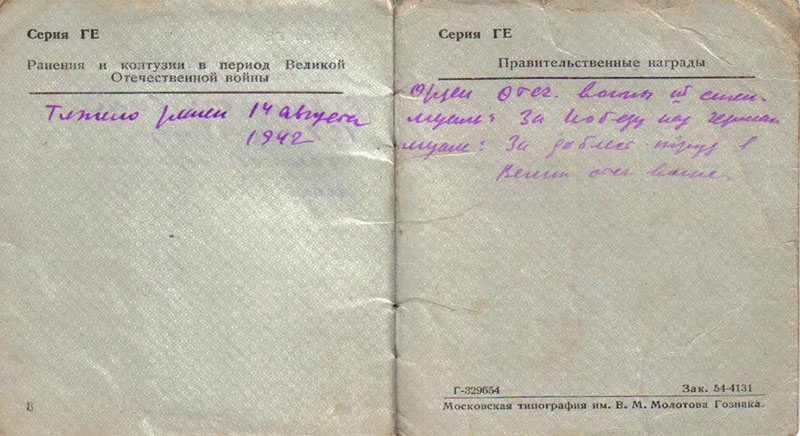 Серия ГЕ
Ранения и контузии в период Великой
Отечественной войны
Тяжело ранен 14 августа
1942
8
Серия ГЕ
Правительственные награды
Орден Отеч. войны степ.
медаль: За Победу над герман
медаль: За доблес труд в
Велик отеч войне.
Г-329654 Зак. 54-4131
Московская типография им. В. М. Молотова Гознака.